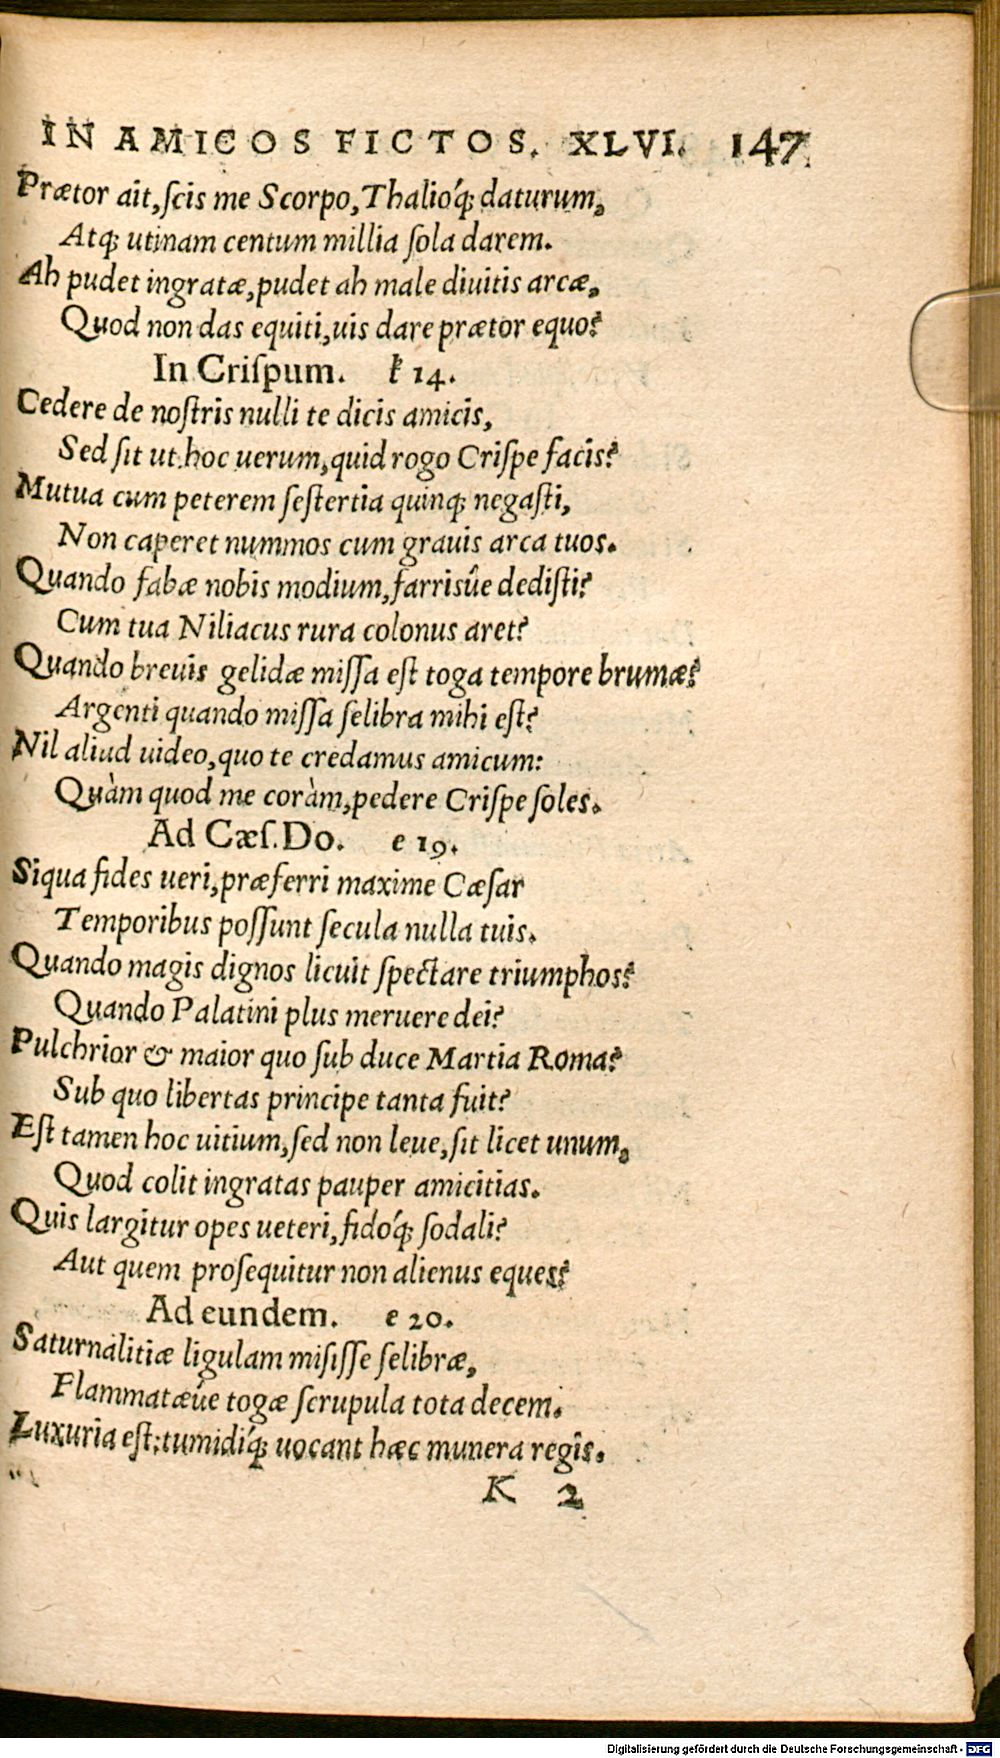 IN AMICOS FICTOS. XLVI. 147
Prætor ait,ſcis me Scorpo,Thalioq́; daturum,
Atq; utinam centum millia ſola darem.
Ah pudet ingratæ,pudet ah male diuitis arcæ,
Quod non das equiti,uis dare prætor equo?
In Criſpum. k 14.
Cedere de noſtris nulli te dicis amicis,
Sed ſit ut hoc uerum,quid rogo Criſpe facis?
Mutua cum peterem ſeſtertia quinq; negaſti,
Non caperet nummos cum grauis arca tuos.
Quando fabæ nobis modium,farrisûe dediſti?
Cum tua Niliacus rura colonus aret?
Quando breuis gelidæ miſſa eſt toga tempore brumæ?
Argenti quando miſſa ſelibra mihi eſt?
Nil aliud uideo,quo te credamus amicum:
Quàm quod me coràm,pedere Criſpe ſoles.
Ad Cæſ. Do. e 19.
Siqua fides ueri,præferri maxime Cæſar
Temporibus poſſunt ſecula nulla tuis.
Quando magis dignos licuit ſpectare triumphos?
Quando Palatini plus meruere dei?
Pulchrior & maior quo ſub duce Martia Roma?
Sub quo libertas principe tanta fuit?
Eſt tamen hoc uitium,ſed non leue,ſit licet unum,
Quod colit ingratas pauper amicitias.
Quis largitur opes ueteri,fidoq́; ſodali?
Aut quem proſequitur non alienus eques?
Ad eundem. e 20.
Saturnalitiæ ligulam miſiſſe ſelibræ,
Flammatæûe togæ ſcrupula tota decem.
Luxuria eſt:tumidiq́; uocant hæc munera regis.
K 2
Digitalisierung gefördert durch die Deutsche Forschungsgemeinschaft - DFG